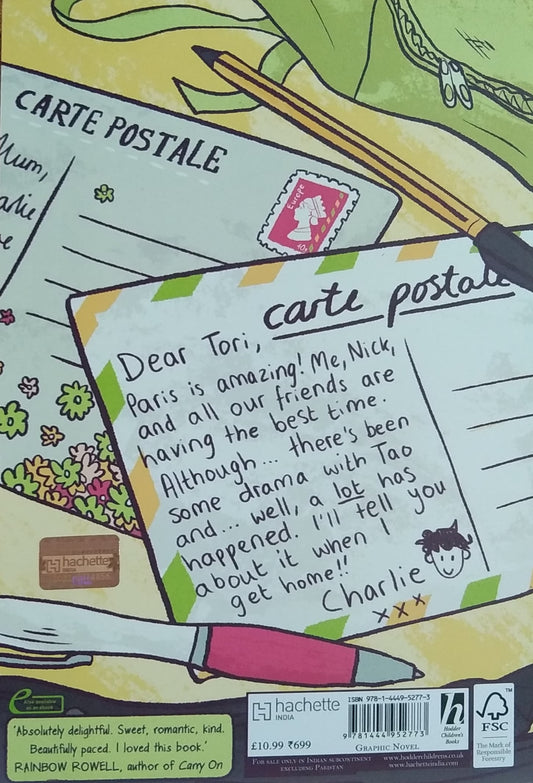 CARTE POSTALE
Mum,
Europe
carte postale
Dear Tori,
Paris is amazing! Me, Nick,
and all our friends are
having the best time.
Although... there's been
some drama with Tao
and... well, a lot has
happened. I'll tell you
about it when I
get home!!
Charlie
x x x
hachette
INDIA
e
Also available
as an ebook
'Absolutely delightful. Sweet, romantic, kind.
Beautifully paced. I loved this book.'
RAINBOW ROWELL, author of Carry On
hachette
INDIA
£10.99 ₹699
ISBN 978-1-4449-5277-3
9 781444 952773
GRAPHIC NOVEL
FOR SALE ONLY IN INDIAN SUBCONTINENT
EXCLUDING PAKISTAN
h
Hodder
Children's
Books
www.hodderchildrens.co.uk
www.hachetteindia.com
TM
FSC
The Mark of
Responsible
Forestry